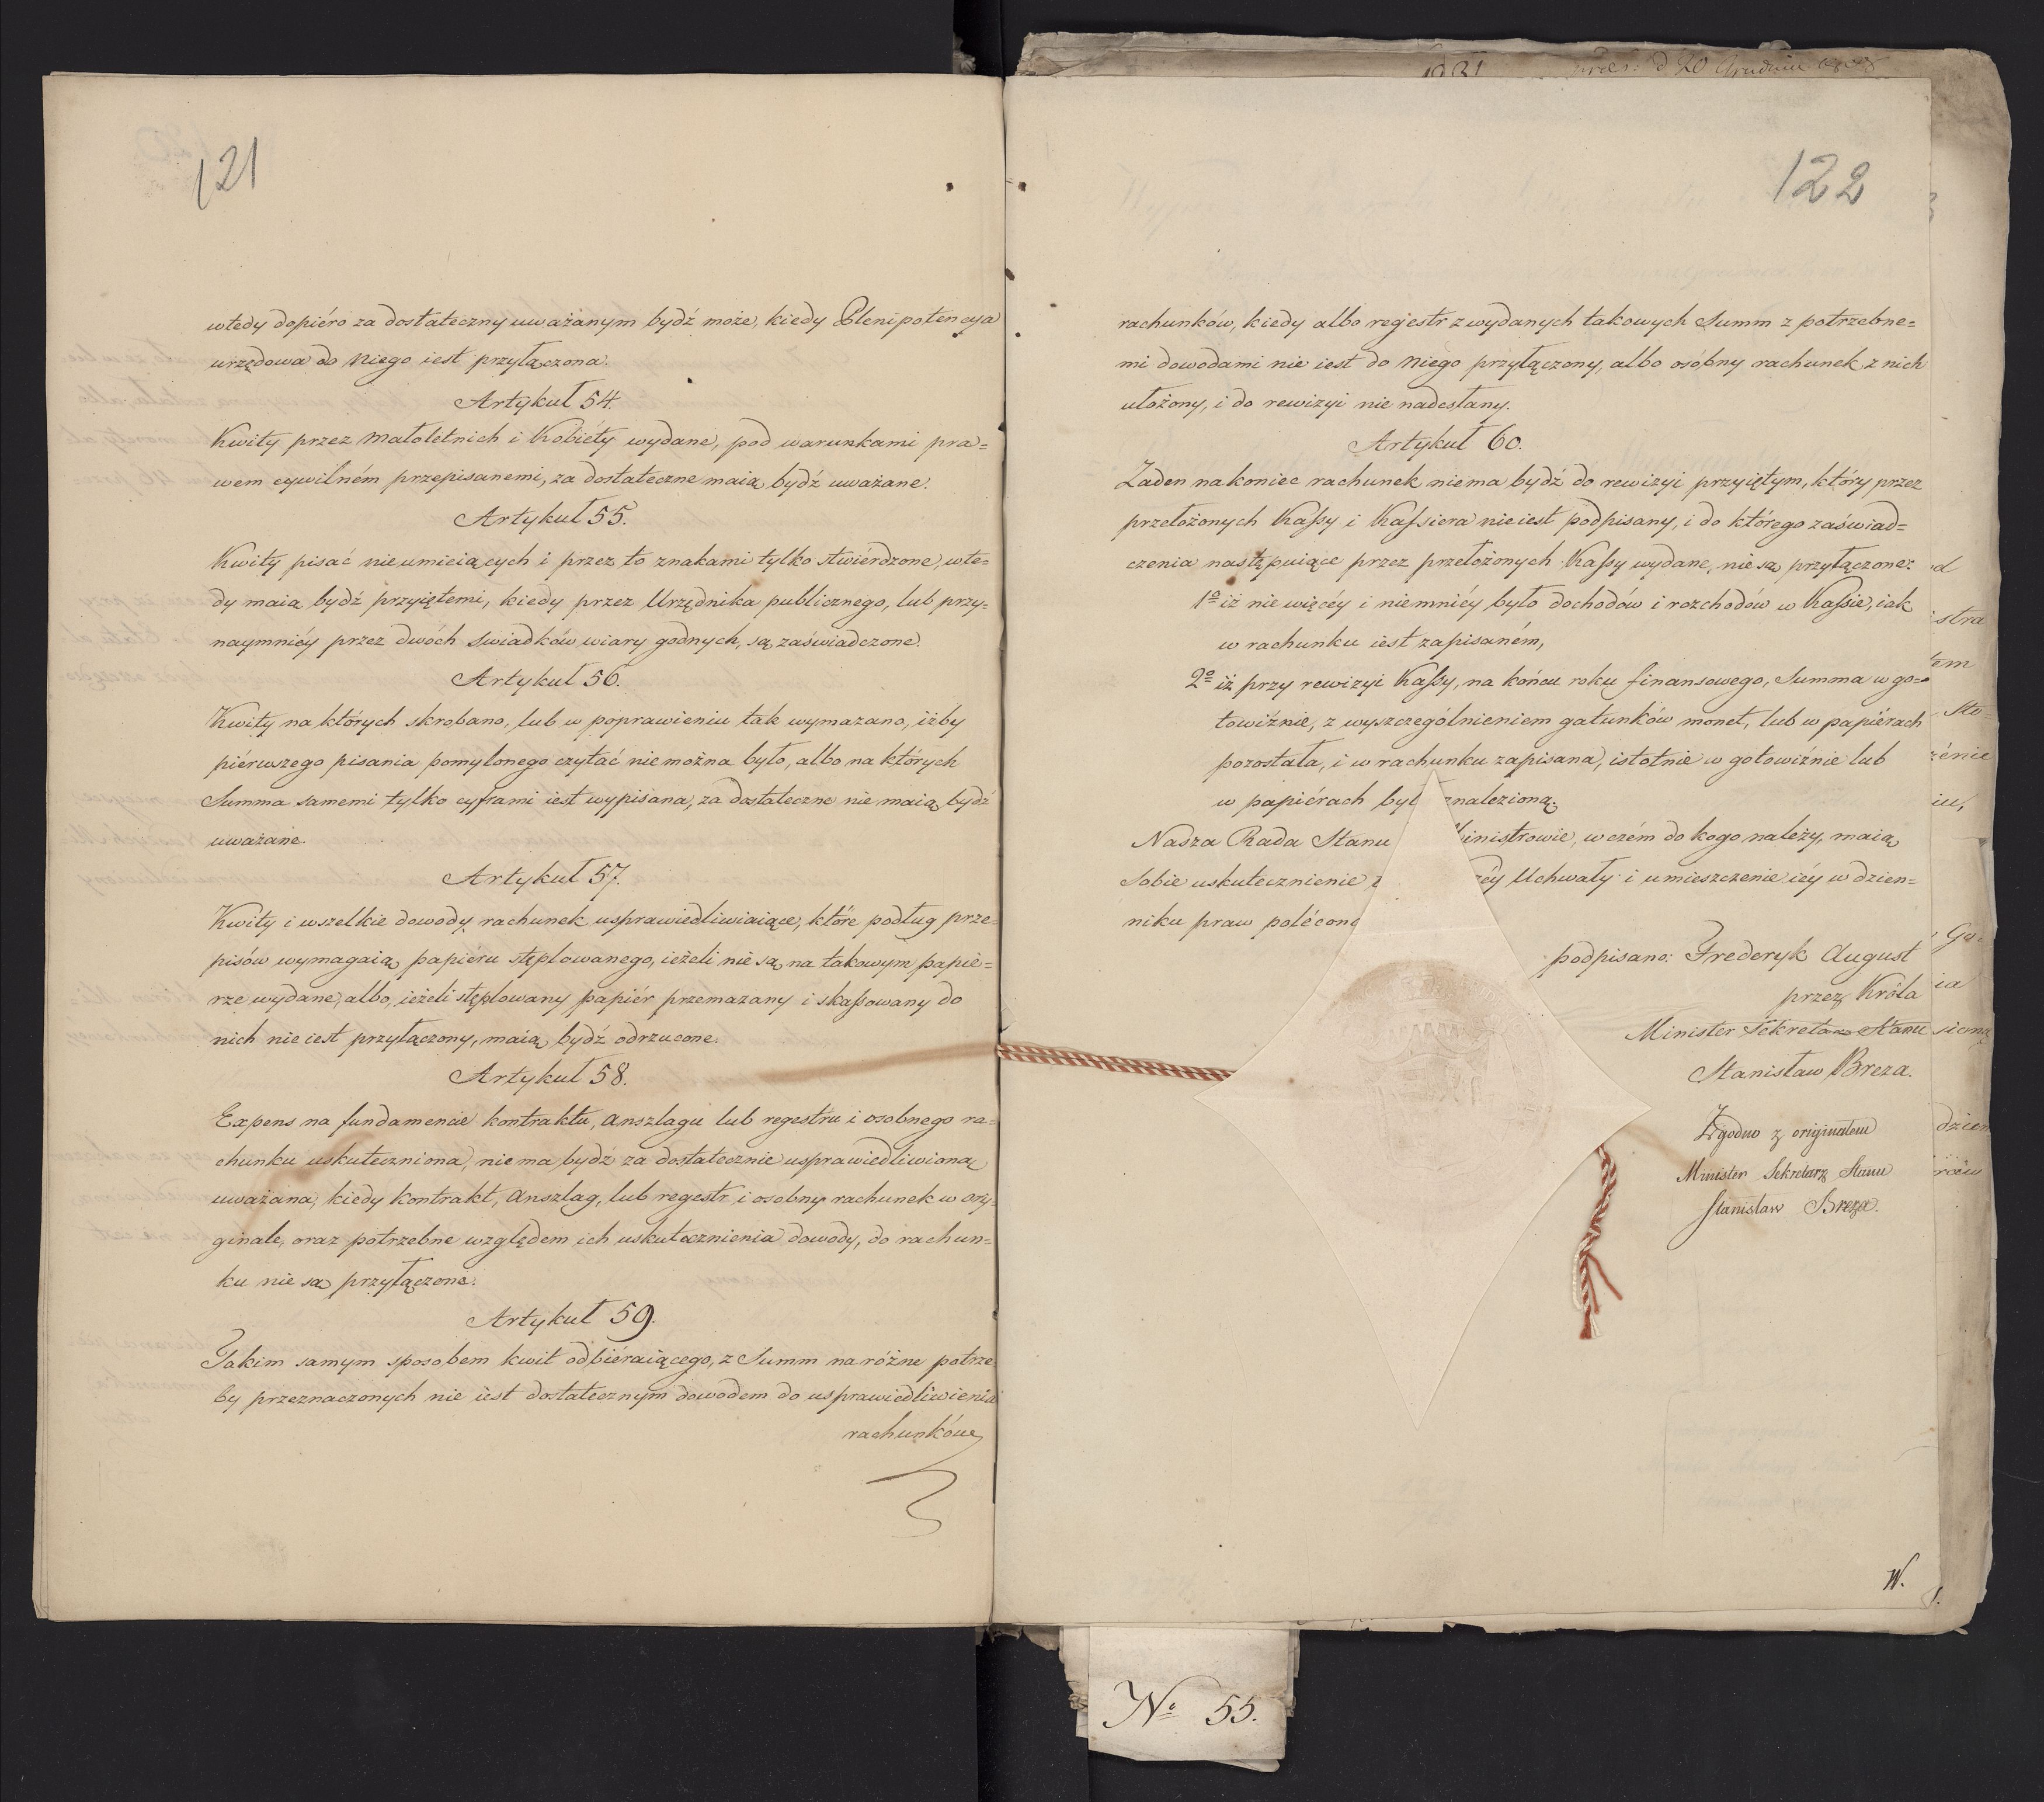 121
wtedy dopiéro za dostateczny uważanym bydź może, kiedy Plenipotencya
urzędowa do niego iest przyłączona.
Artykuł 54.
Kwity przez małoletnich i Kobiéty wydane, pod warunkami pra=
wem cywilném przepisanemi, za dostateczne maią bydź uważane.
Artykuł 55.
Kwity pisać nieumieiących i przez to znakami tylko stwiérdzone, wte=
dy maią bydź przyiętemi, kiedy przez Urzędnika publicznego, lub przy=
naymniéy przez dwóch świadków wiary godnych, są zaświadczone.
Artykuł 56.
Kwity na których skrobano, lub w poprawieniu tak wymazano, iżby
piérwszego pisania pomylonego czytać nie można było, albo na których
Summa samemi tylko cyframi iest wypisana, za dostateczne nie maią bydź
uważane.
Artykuł 57.
Kwity i wszelkie dowody rachunek usprawiedliwiaiące, które podług prze=
pisów wymagaią papiéru stęplowanego, ieżeli nie są na takowym papie=
rze wydane, albo, ieżeli stęplowany papiér przemazany i skassowany do
nich nie iest przyłączony, maią bydź odrzucone.
Artykuł 58.
Expens na fundamencie kontraktu, anszlagu lub regestru i osobnego ra=
chunku uskuteczniona, nie ma bydź za dostatecznie usprawiedliwioną
uważana, kiedy kontrakt, anszlag, lub regestr i osobny rachunek w ory=
ginale, oraz potrzebne względem ich uskutecznienia dowody, do rachun=
ku nie są przyłączone.
Artykuł 59.
Takim samym sposobem kwit odbiéraiącego, z Summ na różne potrze
by przeznaczonych nie iest dostatecznym dowodem do usprawiedliwienia
rachunków
20 Grudnia
122
rachunków, kiedy albo regestr z wydanych takowych Summ z potrzebne=
mi dowodami nie iest do niego przyłączony, albo osóbny rachunek z nich
ułożony, i do rewizyi nie nadesłany.
Artykuł 60.
Żaden nakoniec rachunek niema bydź do rewizyi przyiętym, który przez
przełożonych Kassy i Kassiera nieiest podpisany, i do którego zaświad=
czenia następuiące przez przełożonych Kassy wydane, nie są przyłączone:
1o iż nie więcéy i niemniéy było dochodów i rozchodów w Kassie, iak
w rachunku iest zapisaném,
2o iż przy rewizyi Kassy, na końcu roku finansowego, Summa w go=
towiźnie, z wyszczególnieniem gatunków monet, lub w papiérach
pozostała, i w rachunku zapisana, istotnie w gotowiźnie lub
w papiérach był znalezioną.
Nasza Rada Stanu inistrowie, w czém do kogo należy, maią
Sobie uskutecznienie éy Uchwały i umieszczenie iéy w dzien=
niku praw polécon
podpisano: Frederyk August
przez Króla
Minister Sekretarz Stanu
Stanisław Breza.
Zgodno z originałem
Minister Sekretarz Stanu
Stanisław Breza.
W.
No 55.